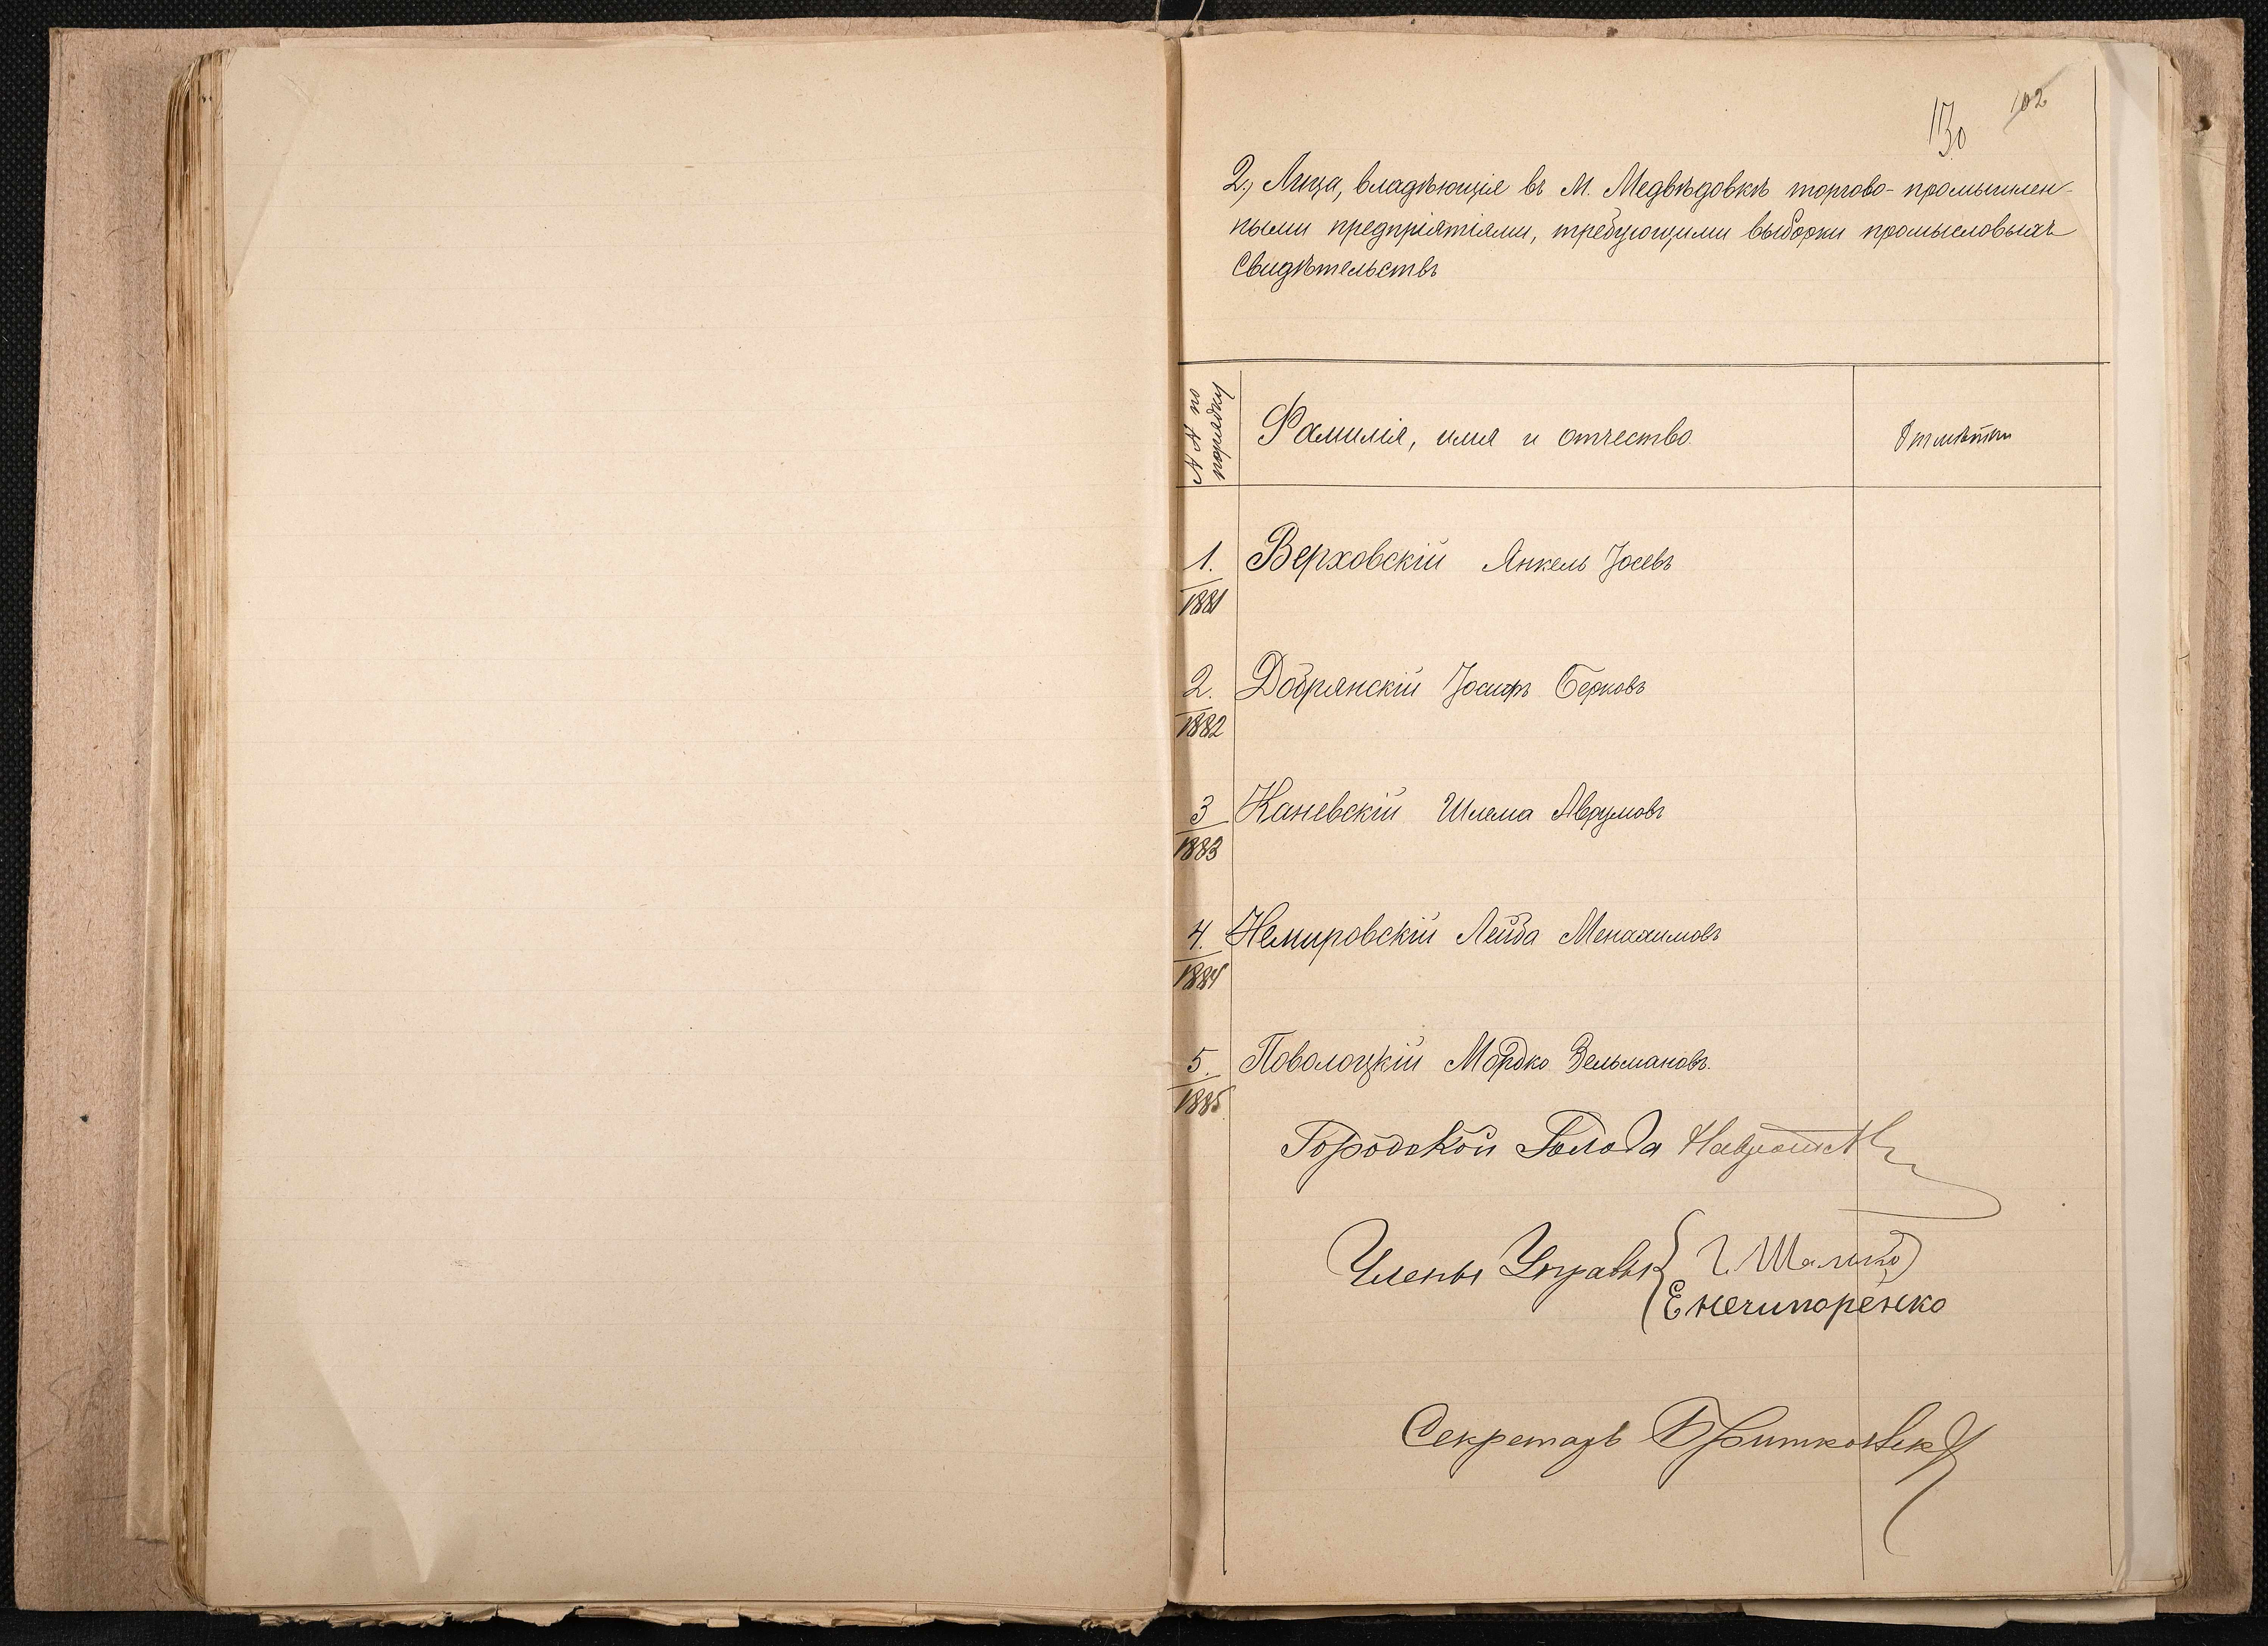 102
130
2, Лица, владѣющія въ М. Медвѣдовкѣ торгово-промышлен-
ными предпріятіями, требующими выборки промысловыхъ
Свидѣтельствъ
№ № по порядку
Фамилія, имя и отчество
Отмѣтки
1. Верховскій Янкель Іосевъ
1881
2. Добрянскій Іосифъ Берковъ
1882
3 Каневскій Шлема Аврумовъ
1883
4. Немировскій Лейба Менахимовъ
1884
5. Поволоцкій Мордко Зельмановъ.
1885
Городской Голова
Члены Управы
Е Нечипоренко
Секретарь